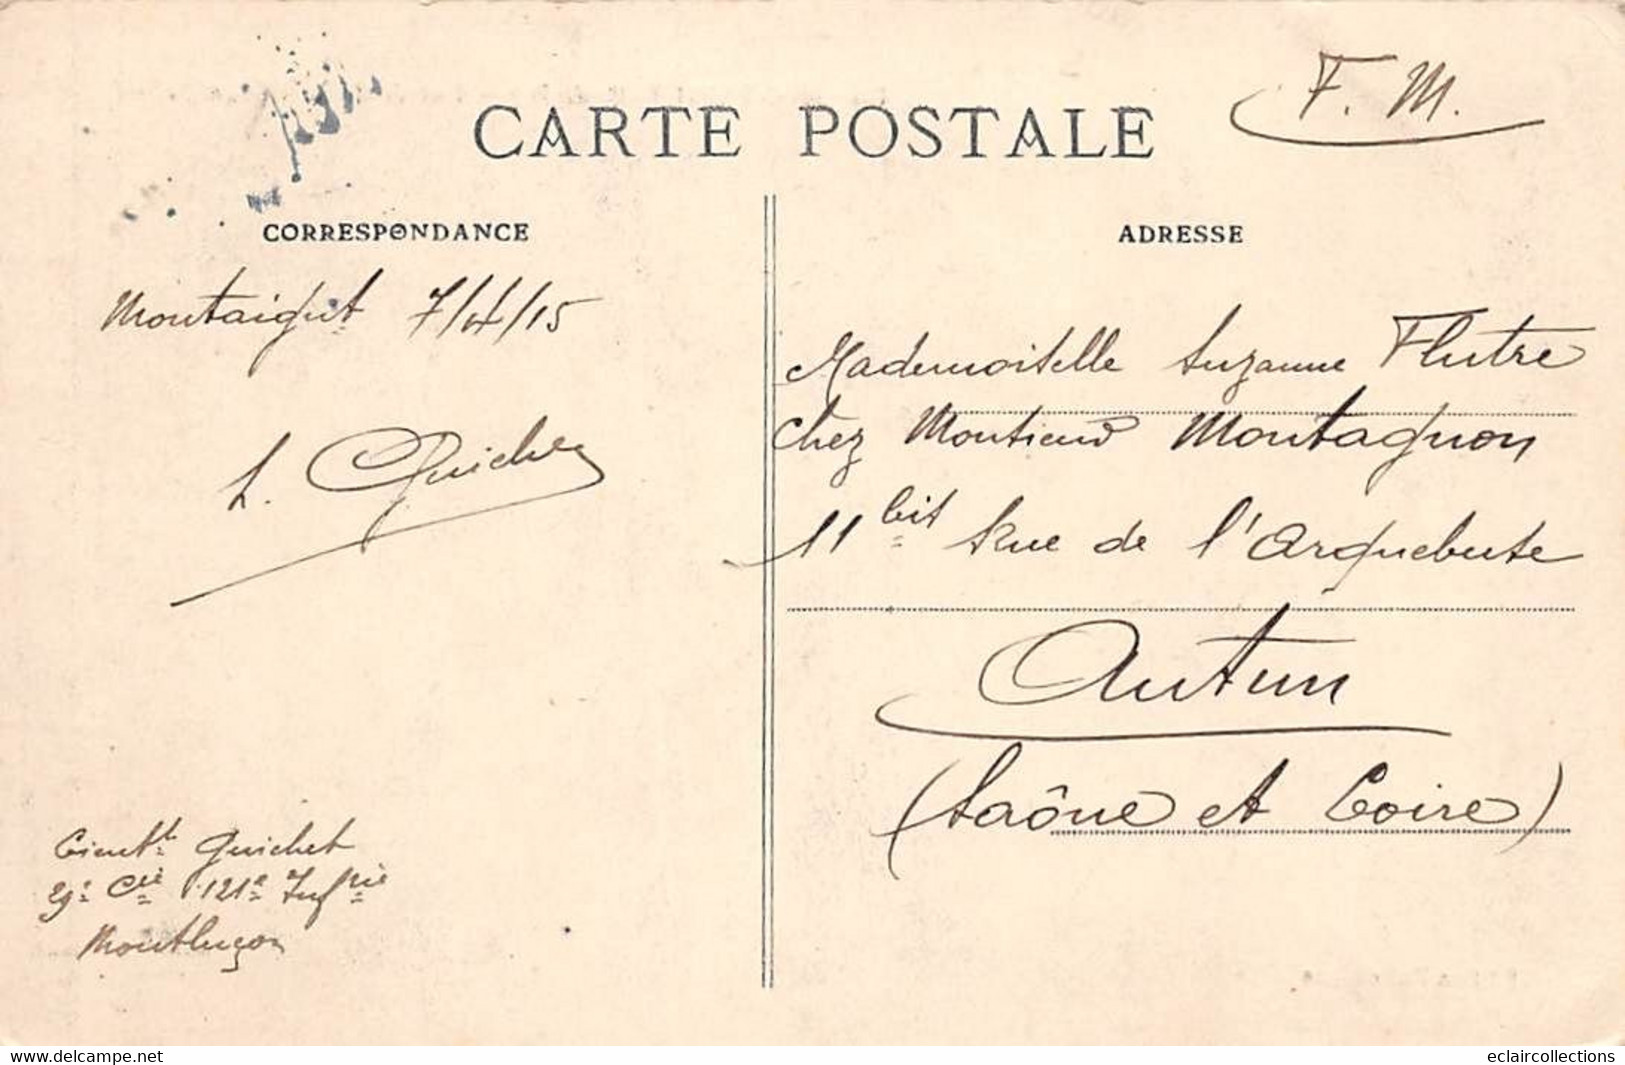 F. M.
CARTE POSTALE
CORRESPONDANCE
ADRESSE
Montaigut 7/4/15
L. Guichet
Mademoiselle Suzanne Flutre
chez Monsieur Montagnon
11 bis Rue de l'Arquebuse
Autun
(Saône et Loire)
Guichet
29e Cie 121e Infrie
Montluçon
www.delcampe.net
eclaircollections